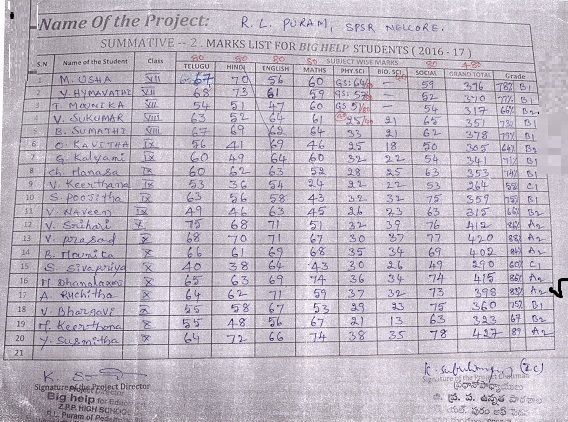 Name Of the Project: R. L. PURAM, SPSR NELLORE.
SUMMATIVE -- 2. MARKS LIST FOR BIG HELP STUDENTS ( 2016 - 17 )
80 80 80 80 80 480
SUBJECT WISE MARKS
S.N Name of the Student Class TELUGU HINDI ENGLISH MATHS PHY.SCI BIO. SCI SOCIAL GRAND TOTAL Grade
1 M. USHA VIII 67 70 56 60 GS: 64 — 59 376 78% B1
2 V. HYMAVATHI VIII 68 73 61 59 GS: 57 — 52 370 77% B1
3 T. MOUNIKA VIII 54 51 47 60 GS 51 — 54 317 66% B2
4 V. SUKUMAR VIII 63 52 64 61 25 21 65 351 73% B1
5 B. SUMATHI VIII 67 69 62 64 33 21 62 378 79% B1
6 O. KAVITHA IX 56 41 69 46 25 18 50 305 64% B2
7 G. Kalyani IX 60 49 64 60 32 22 54 341 71% B1
8 Ch. Manasa IX 60 62 63 52 28 25 63 353 74% B1
9 V. Keerthana IX 53 36 54 24 22 22 53 264 55% C1
10 S. Poojitha IX 63 56 58 43 32 32 75 359 75% B1
11 V. NAVeen IX 49 46 63 45 26 23 63 315 66% B2
12 V. Srihari X 75 68 71 51 32 39 76 412 86% A2
13 V. prasad X 68 70 71 67 30 37 77 420 88% A2
14 B. Mounica X 66 61 69 68 35 34 69 402 84% A2
15 S. Sivapriya X 40 38 64 43 30 26 49 290 60% C1
16 M. Dhanalaxmi X 65 63 69 74 36 34 74 415 86% A2
17 A. Ruchitha X 64 62 71 59 37 32 73 398 83% A2
18 V. Bhargavi X 55 58 67 53 29 23 75 360 75% B1
19 M. Keerthana X 55 48 56 67 21 13 63 323 67 B2
20 Y. Susmitha X 64 72 66 74 38 35 78 427 89 A2
21
Signature of the Project Director
Big help for Edu
Z.P.P. HIGH SCHOOL
Puram of
Signature of the Project Chairman
ప్రధానోపాధ్యాయులు